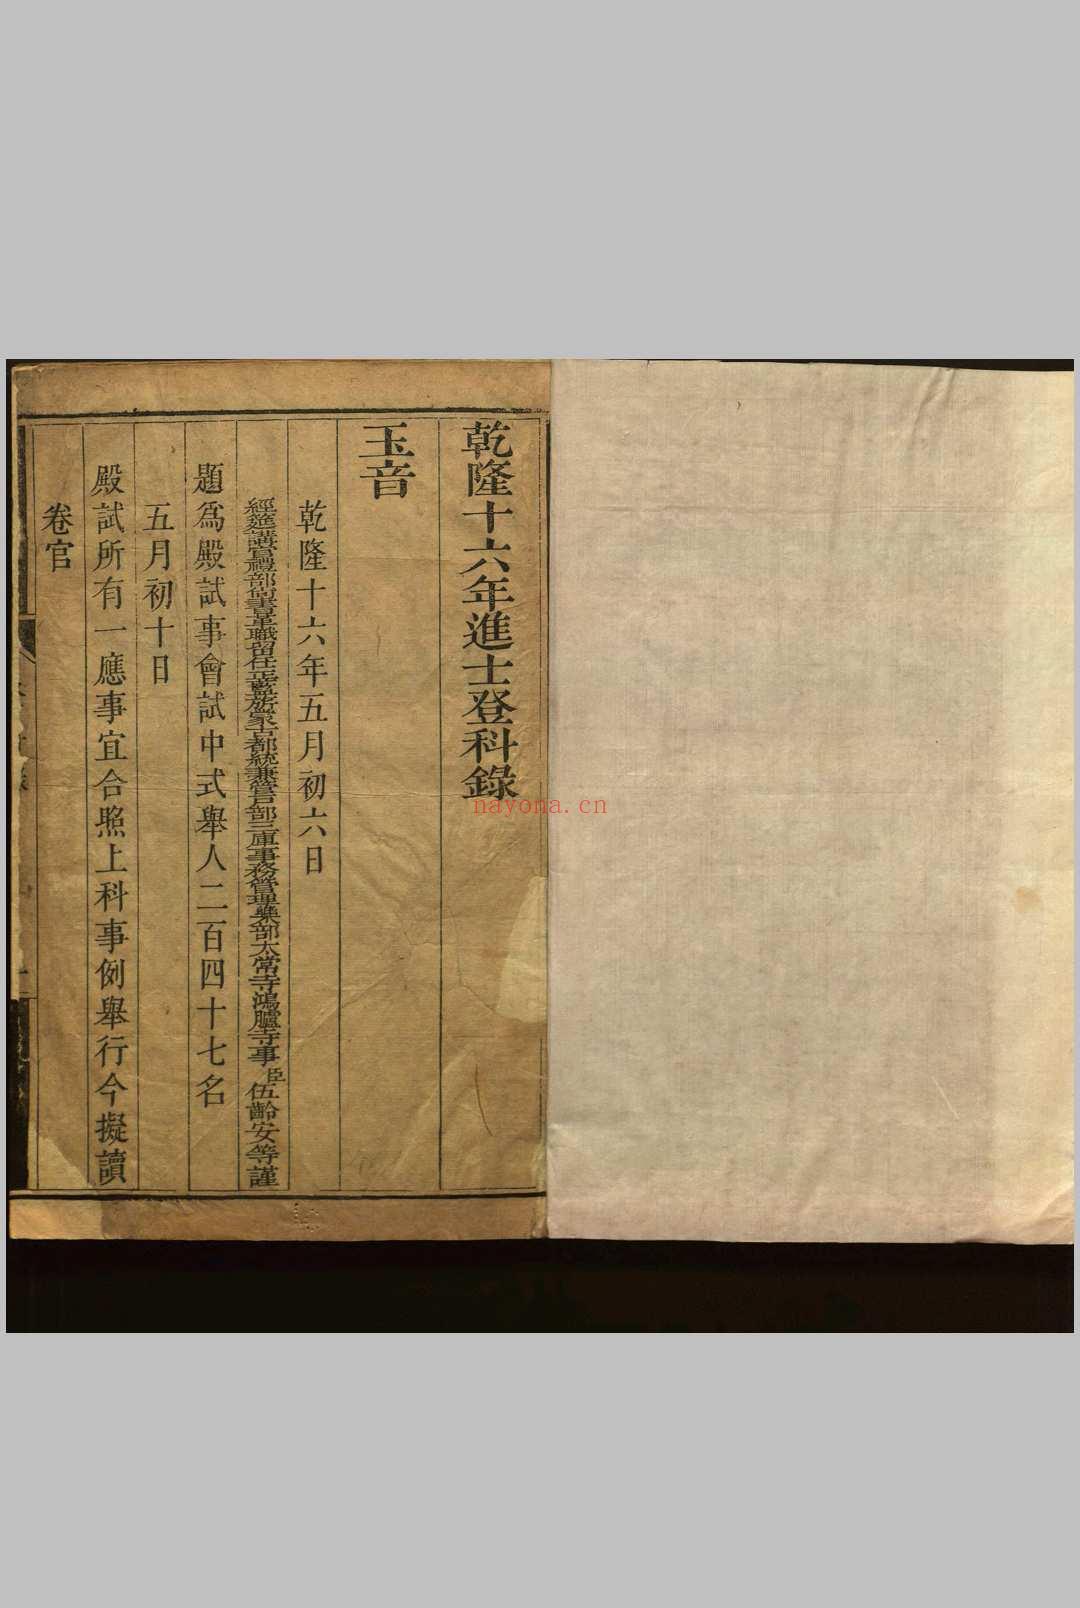 乾隆十六年進士登科錄
玉音
乾隆十六年五月初六日
經筵講官禮部尚書革職留任正藍旗蒙古都統兼管戶部三庫事務管理樂部太常寺鴻臚寺事臣伍齡安等謹
題爲殿試事會試中式舉人二百四十七名
五月初十日
殿試所有一應事宜合照上科事例舉行今擬讀
卷官
nayona.cn